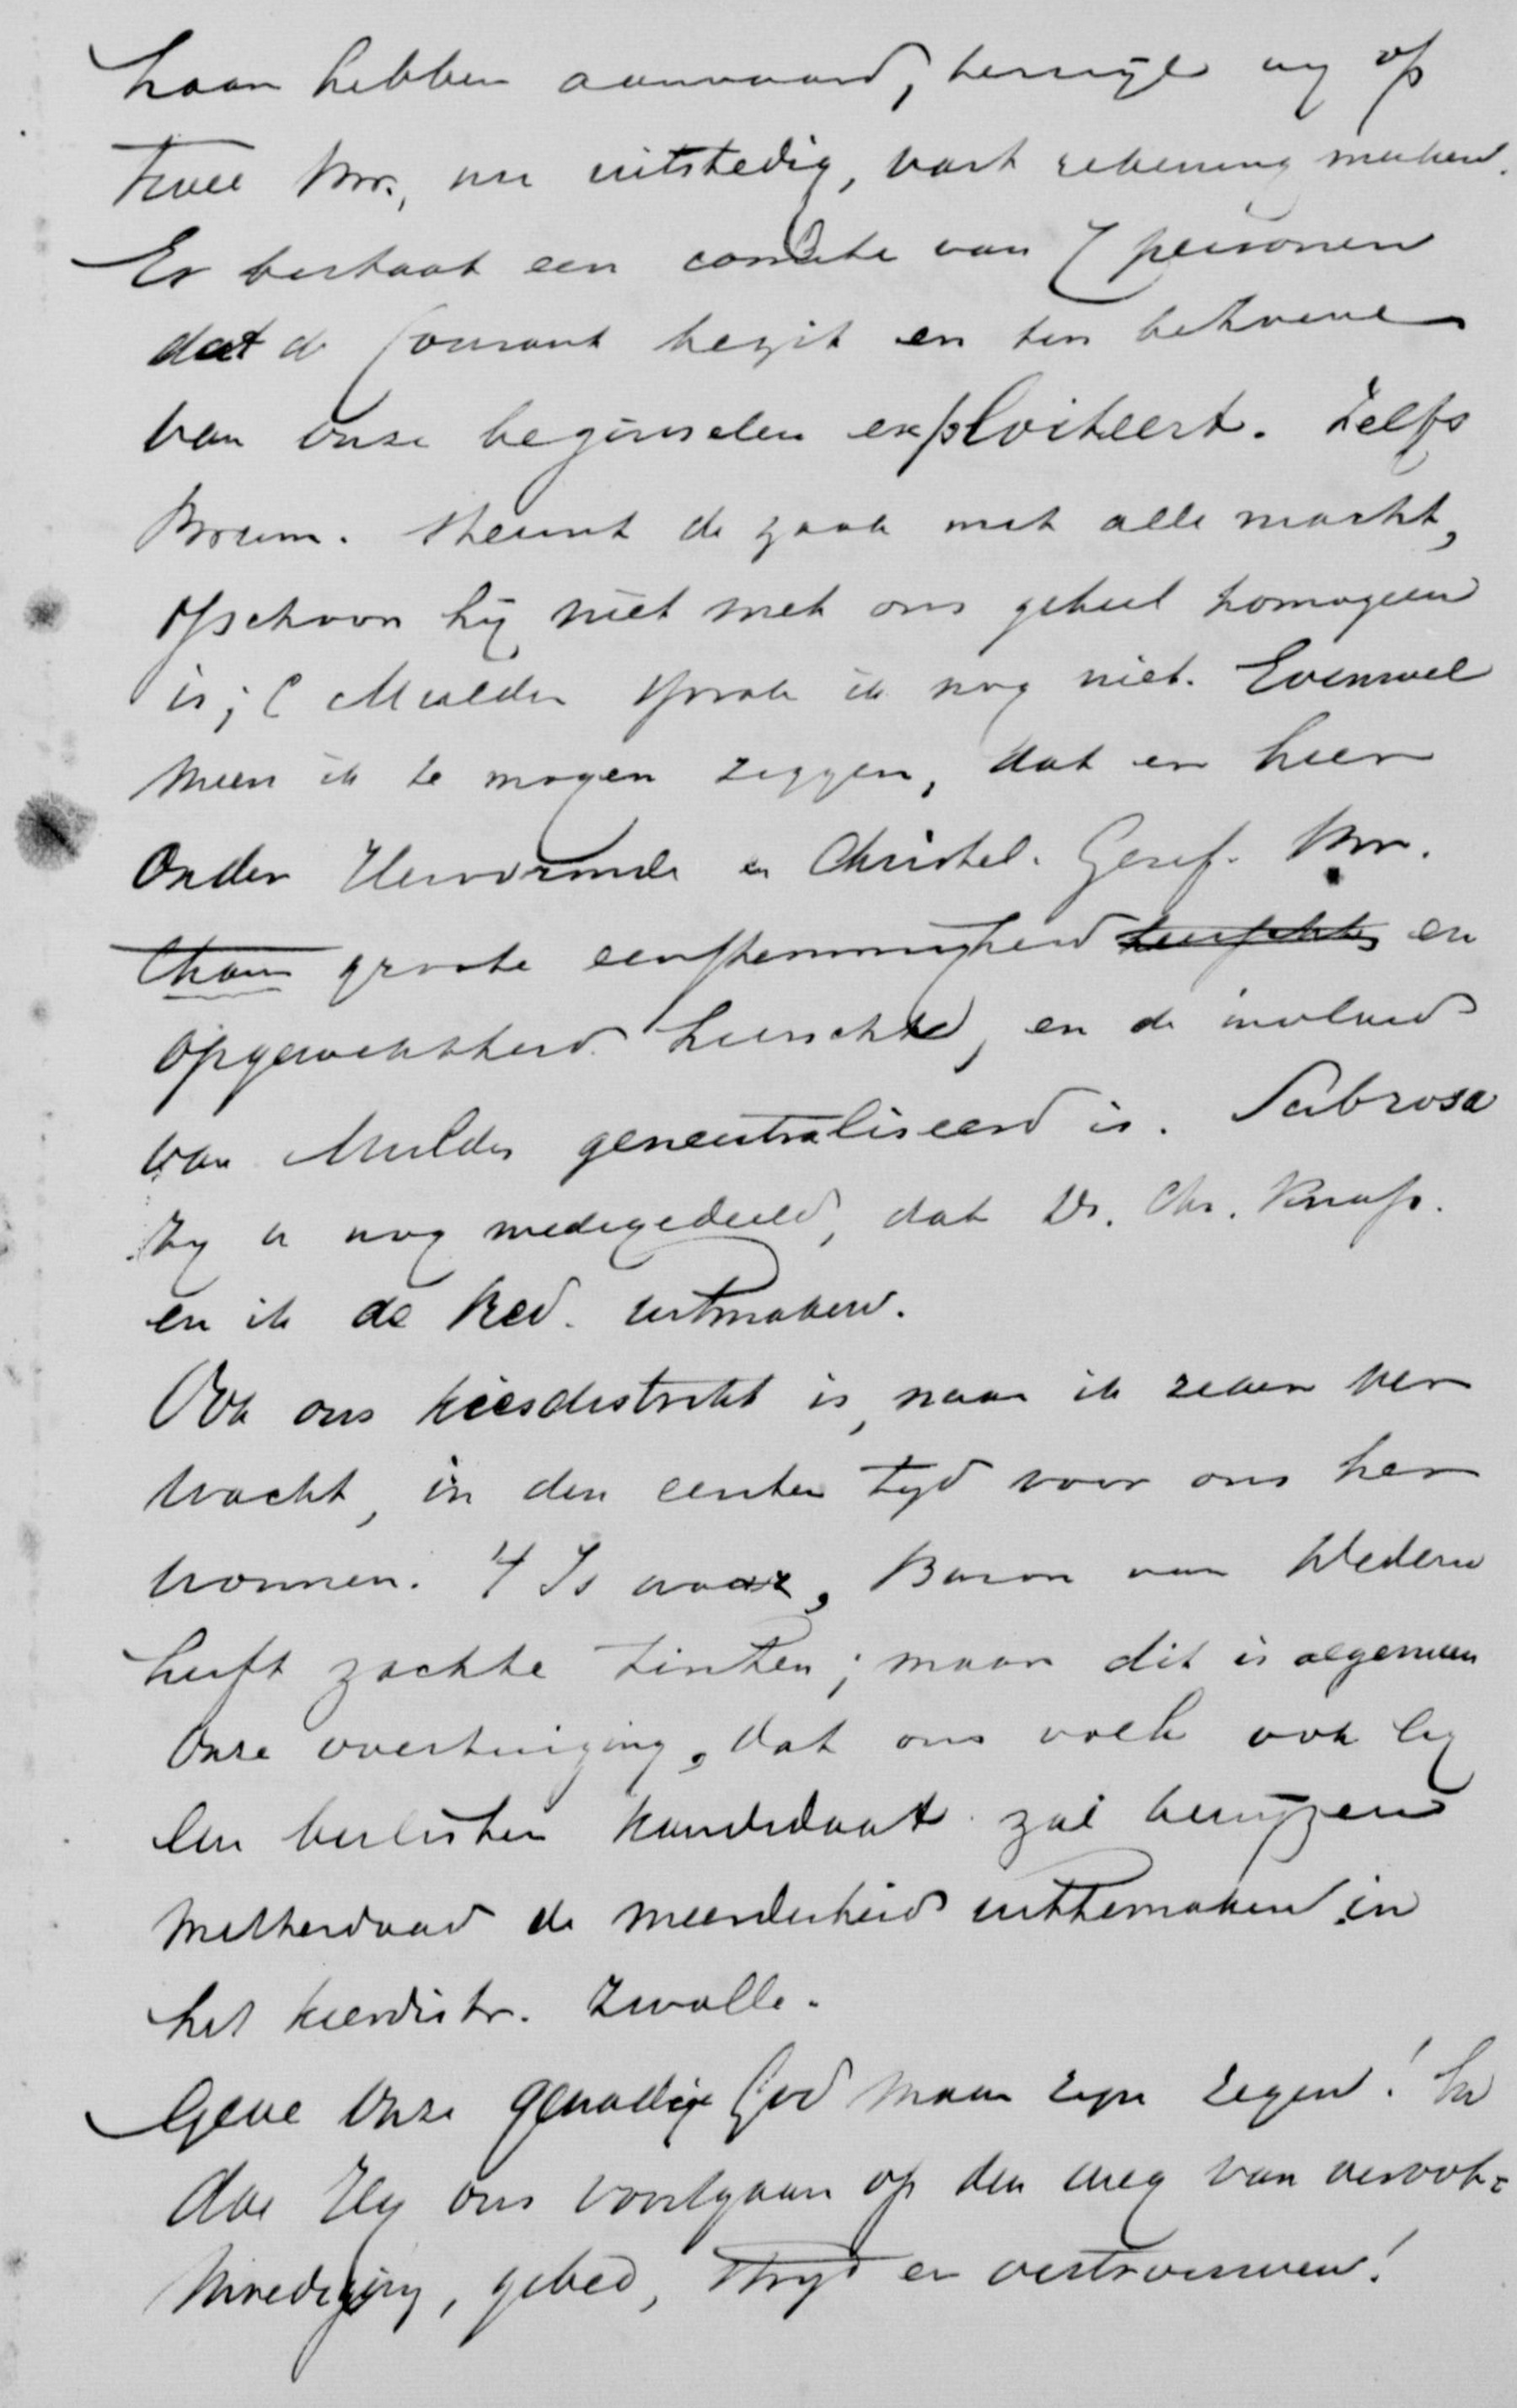 haar hebben aanvaard, terwijl wij op
twee brrs., nu uitstedig, vast rekening maken.
Er bestaat een comite van 7 personen
dat de Courant bezit en ten behoeve
van onze beginselen exploiteert. Zelfs
Brum. steunt de zaak met alle macht,
ofschoon hij niet met ons geheel homogeen
is; C Mulder sprak ik nog niet. Evenwel
meen ik te mogen zeggen, dat er hier
onder Hervormde en Christel. Geref. brr.
thans groote eenstemmigheid en
opgewektheid heerscht, en de invloed
van Mulder geneutraliseerd is. Sub rosa
zij u nog medegedeeld, dat Ds. Chr. Knap.
en ik de Red. uitmaken.
Ook ons kiesdistrikt is, naar ik zeker ver
wacht, in den eersten tijd voor ons her
wonnen. 't Is waar, Baron van Wederen
heeft zachte tinten; maar dit is algemeen
onze overtuiging, dat ons volk ook bij
een beslisten kandidaat zal bewijzen
metterdaad de meerderheid uittemaken in
het kiesdistr. Zwolle.
Geve onze genadige God maar zijn zegen! En
doe Hij ons voortgaan op den weg van veroot=
moediging, gebed, strijd en vertrouwen!